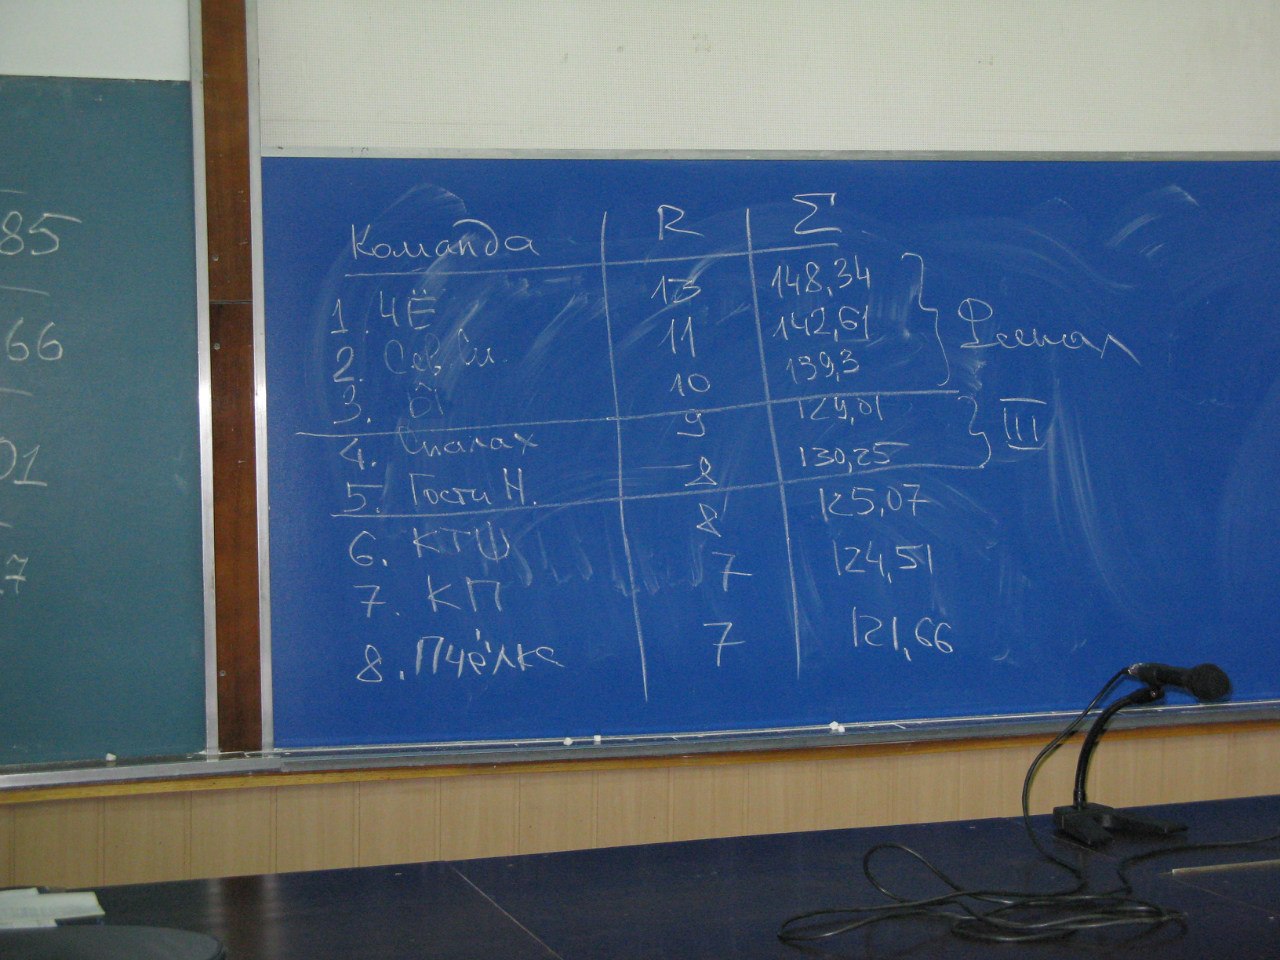 85
66
01
.7
Команда R Σ
1. ЧЁ 13 148,34
2. 11 142,61
Финал
3. 10 139,3
4. Спалах 9 129,01
III
5. Гости Н. 8 130,25
6. КТШ 8 125,07
7. КП 7 124,51
8. Пчёлка 7 121,66